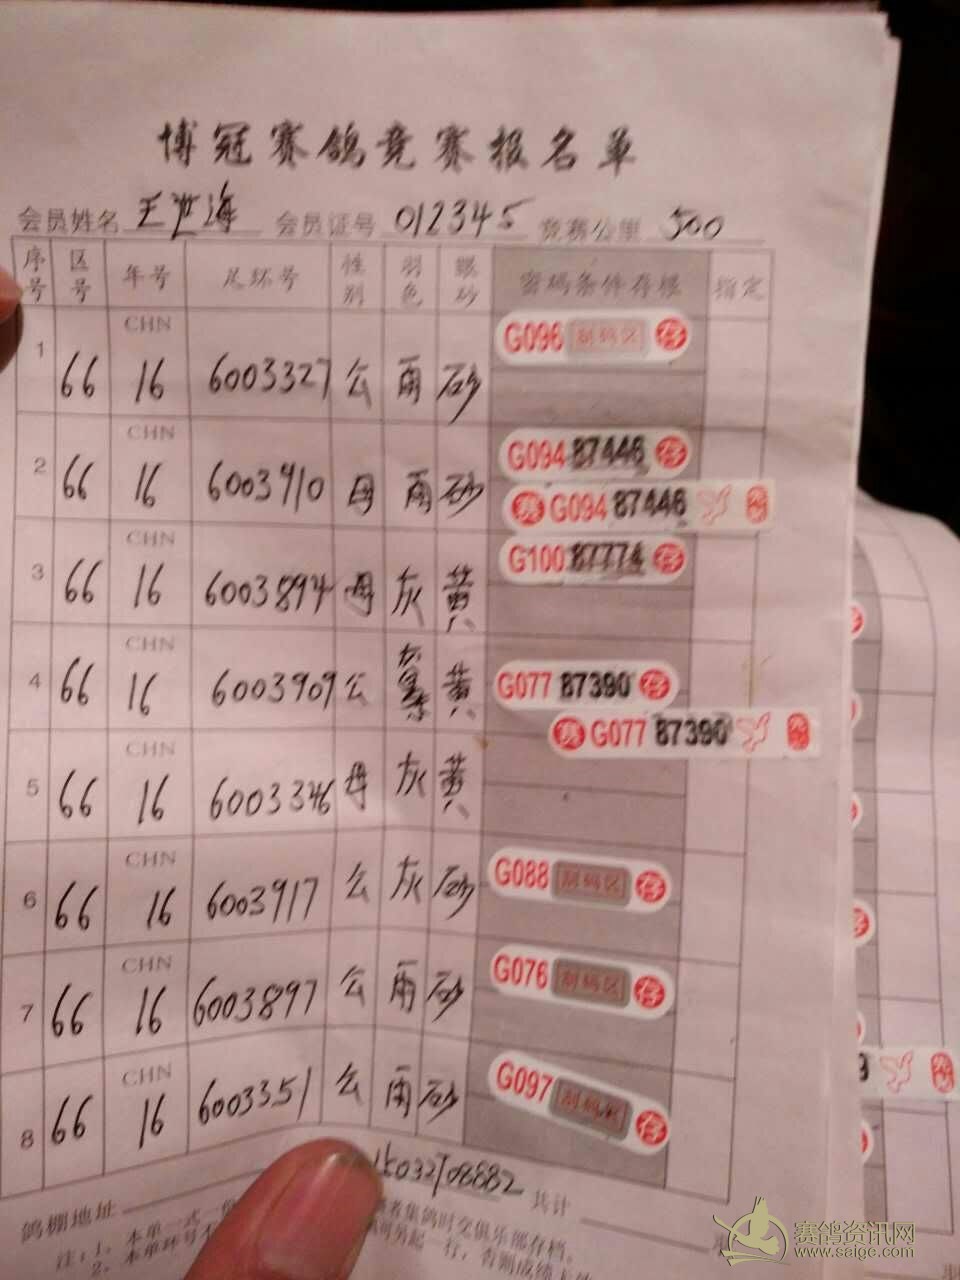 博冠赛鸽竞赛报名单
会员姓名 王 海 会员证号 012345 竞赛公里 500
序号 区号 年号 足环号 性别 羽色 眼砂 密码条件存根 指定
1 66 CHN 16 6003327 公 雨 砂 G096 刮码区 存
2 66 CHN 16 6003910 母 雨 砂 G094 87446 存
赛 G094 87446
3 66 CHN 16 6003894 母 灰 黄 G100 87774 存
4 66 CHN 16 6003909 公 黄 G077 87390 存
赛 G077 87390
5 66 CHN 16 6003346 母 灰 黄
6 66 CHN 16 6003917 公 灰 砂 G088 刮码区 存
7 66 CHN 16 6003897 公 雨 砂 G076 刮码区 存
8 66 CHN 16 6003351 公 雨 砂 G097 刮码区 存
鸽棚地址 15032708882 共计
注：1、本单一式一 者集鸽时交俱乐部存档。
2、本单环号不 可另起一行，否则成绩
赛鸽资讯网
www.saigc.com